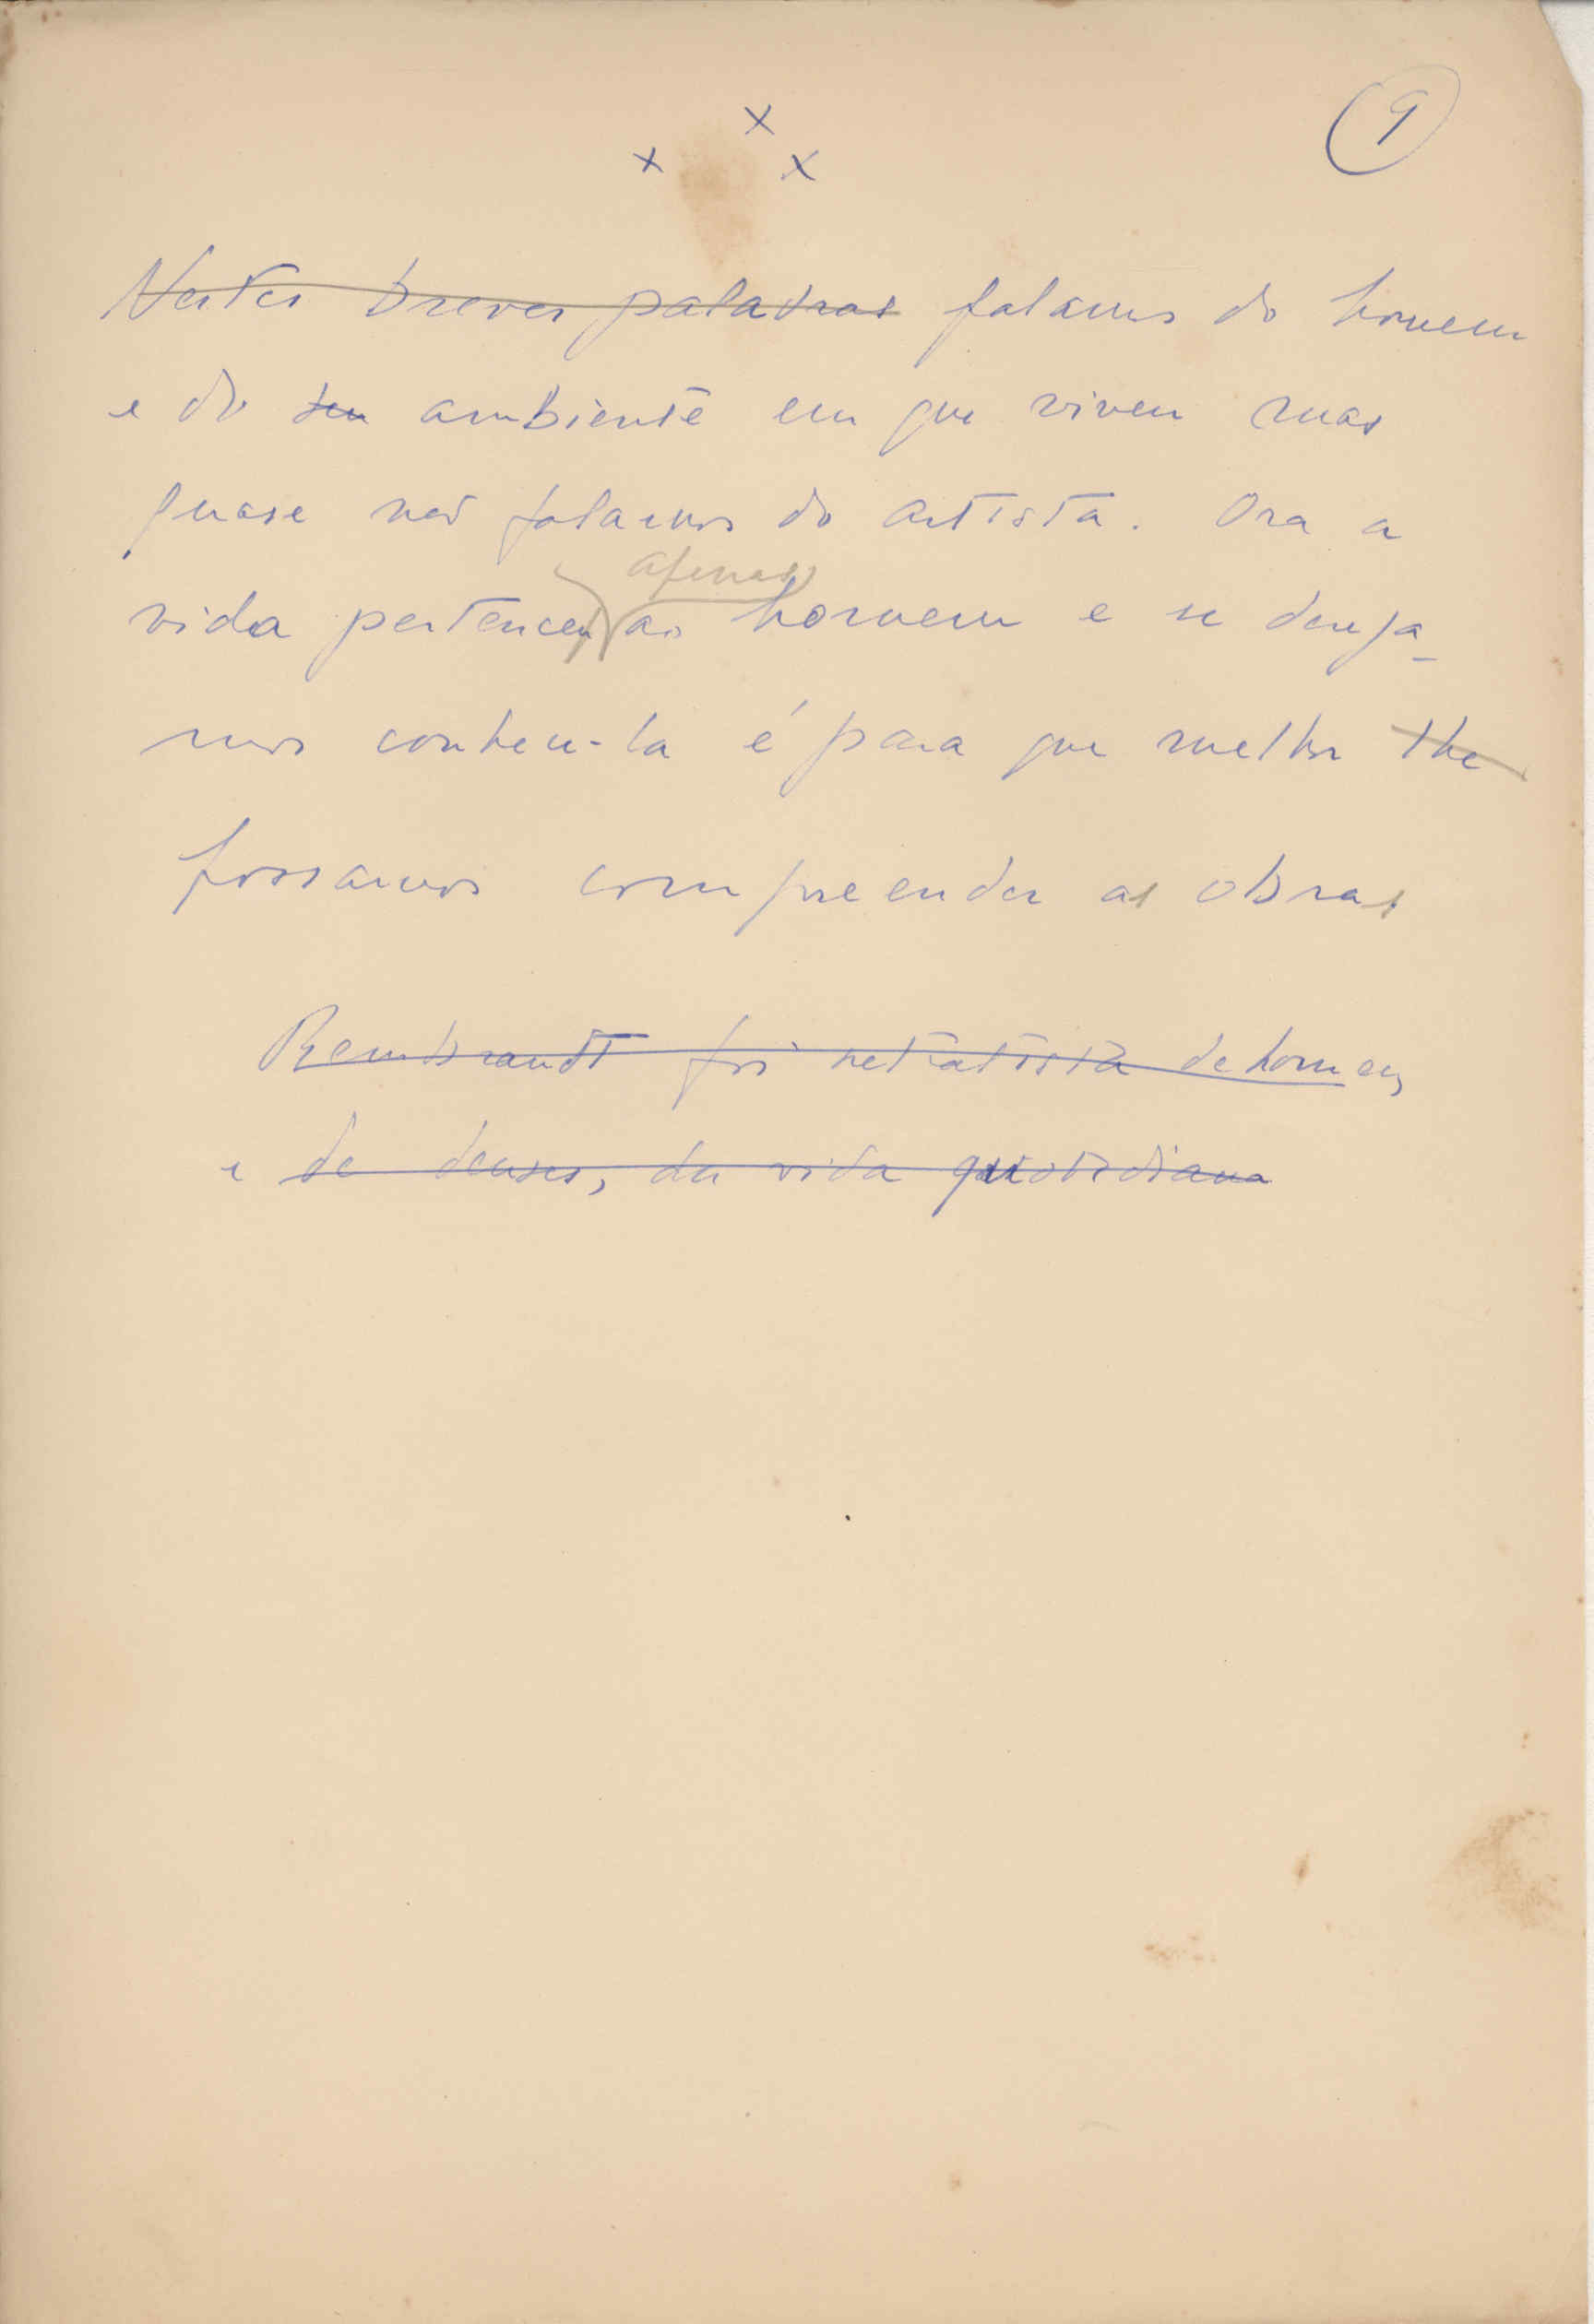 x
x x
9
Nestes breves palavras falamos do homem
e do seu ambiente em que viveu mas
quase não falamos do artista. Ora a
apenas
vida pertenceu ao homem e se deseja_
mos conhece-la é para que melhor lhe
possamos compreender as obras
Rembrandt foi retratista de homens
e de deuses, da vida quotidiana